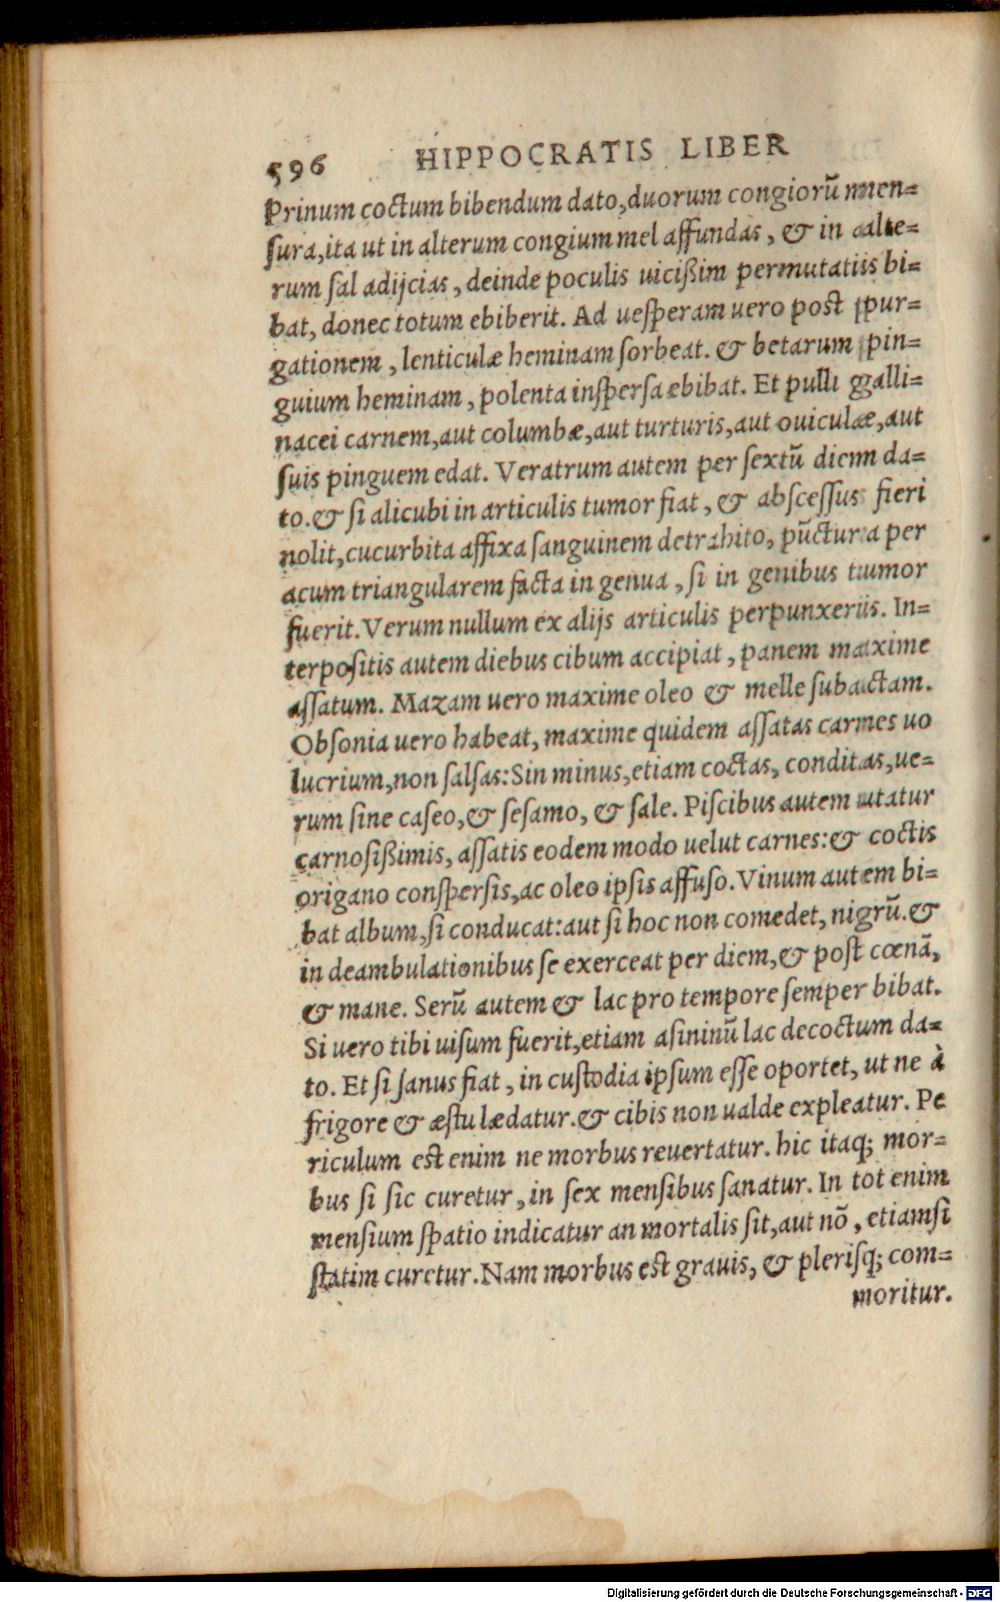 596 HIPPOCRATIS LIBER
Prinum coctum bibendum dato, duorum congiorū men=
sura, ita ut in alterum congium mel affundas, & in alte=
rum sal adijcias, deinde poculis uicißim permutatis bi=
bat, donec totum ebiberit. Ad uesperam uero post pur=
gationem, lenticulæ heminam sorbeat. & betarum pin=
guium heminam, polenta inspersa ebibat. Et pulli galli=
nacei carnem, aut columbæ, aut turturis, aut ouiculæ, aut
suis pinguem edat. Veratrum autem per sextū diem da=
to. & si alicubi in articulis tumor fiat, & abscessus fieri
nolit, cucurbita affixa sanguinem detrahito, pūctura per
acum triangularem facta in genua, si in genibus tumor
fuerit. Verum nullum ex alijs articulis perpunxeris. In=
terpositis autem diebus cibum accipiat, panem maxime
assatum. Mazam uero maxime oleo & melle subactam.
Obsonia uero habeat, maxime quidem assatas carnes uo
lucrium, non salsas: Sin minus, etiam coctas, conditas, ue=
rum sine caseo, & sesamo, & sale. Piscibus autem utatur
carnosißimis, assatis eodem modo uelut carnes: & coctis
origano conspersis, ac oleo ipsis affuso. Vinum autem bi=
bat album, si conducat: aut si hoc non comedet, nigrū. &
in deambulationibus se exerceat per diem, & post cœnā,
& mane. Serū autem & lac pro tempore semper bibat.
Si uero tibi uisum fuerit, etiam asininū lac decoctum da=
to. Et si sanus fiat, in custodia ipsum esse oportet, ut ne à
frigore & æstu lædatur. & cibis non ualde expleatur. Pe
riculum est enim ne morbus reuertatur. hic itaq; mor=
bus si sic curetur, in sex mensibus sanatur. In tot enim
mensium spatio indicatur an mortalis sit, aut nō, etiamsi
statim curetur. Nam morbus est grauis, & plerisq; com=
moritur.
Digitalisierung gefördert durch die Deutsche Forschungsgemeinschaft - DFG